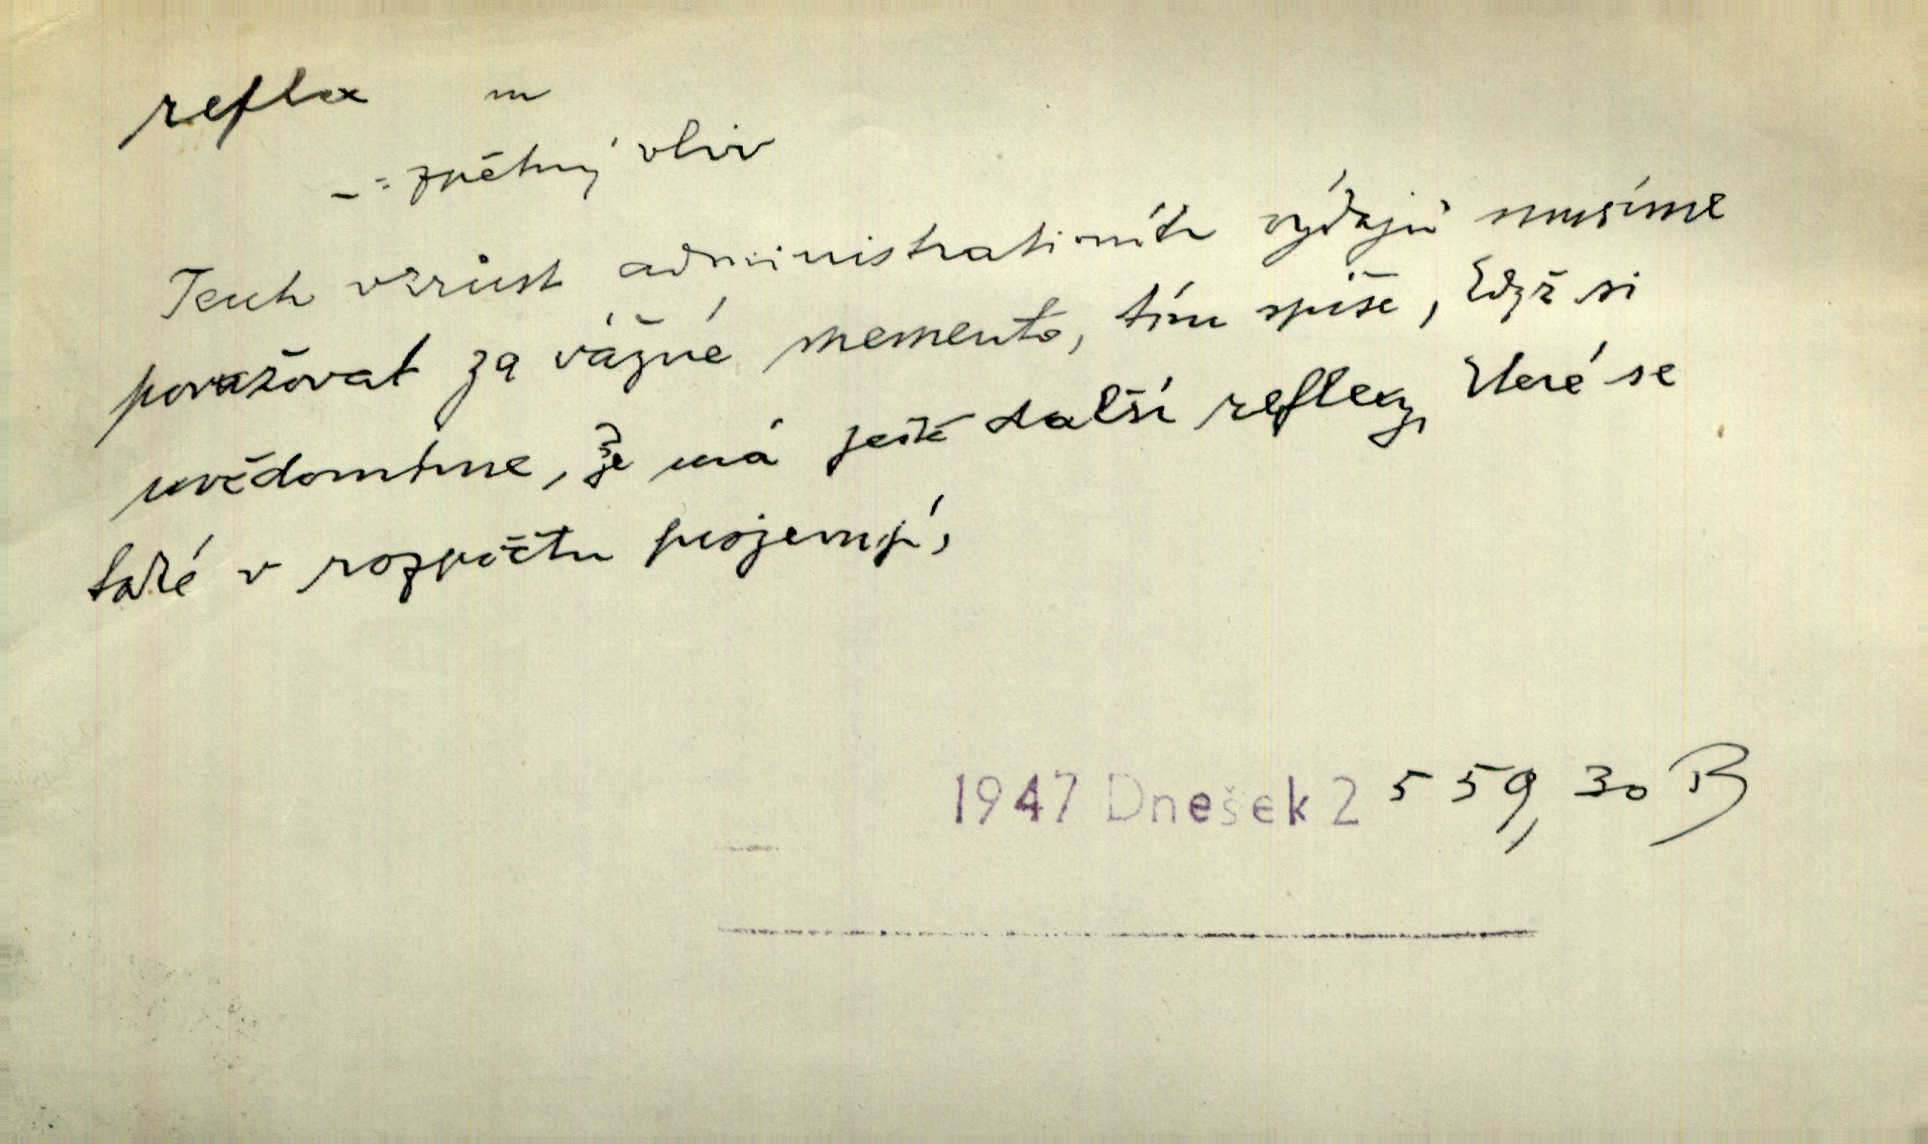 reflex m
-: zpětný vliv
Tento vzrůst administrativních výdajů musíme
považovat za vážné memento, tím spíše, když si
uvědomíme, že má ještě další reflexy, které se
také v rozpočtu projevují,
1947 Dnešek 2 559, 30 B